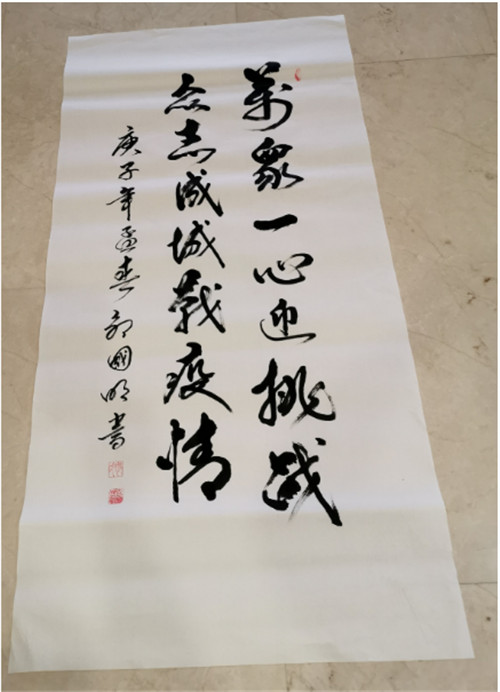 萬眾一心迎挑战
众志成城戰疫情
庚子年孟春郭國明書